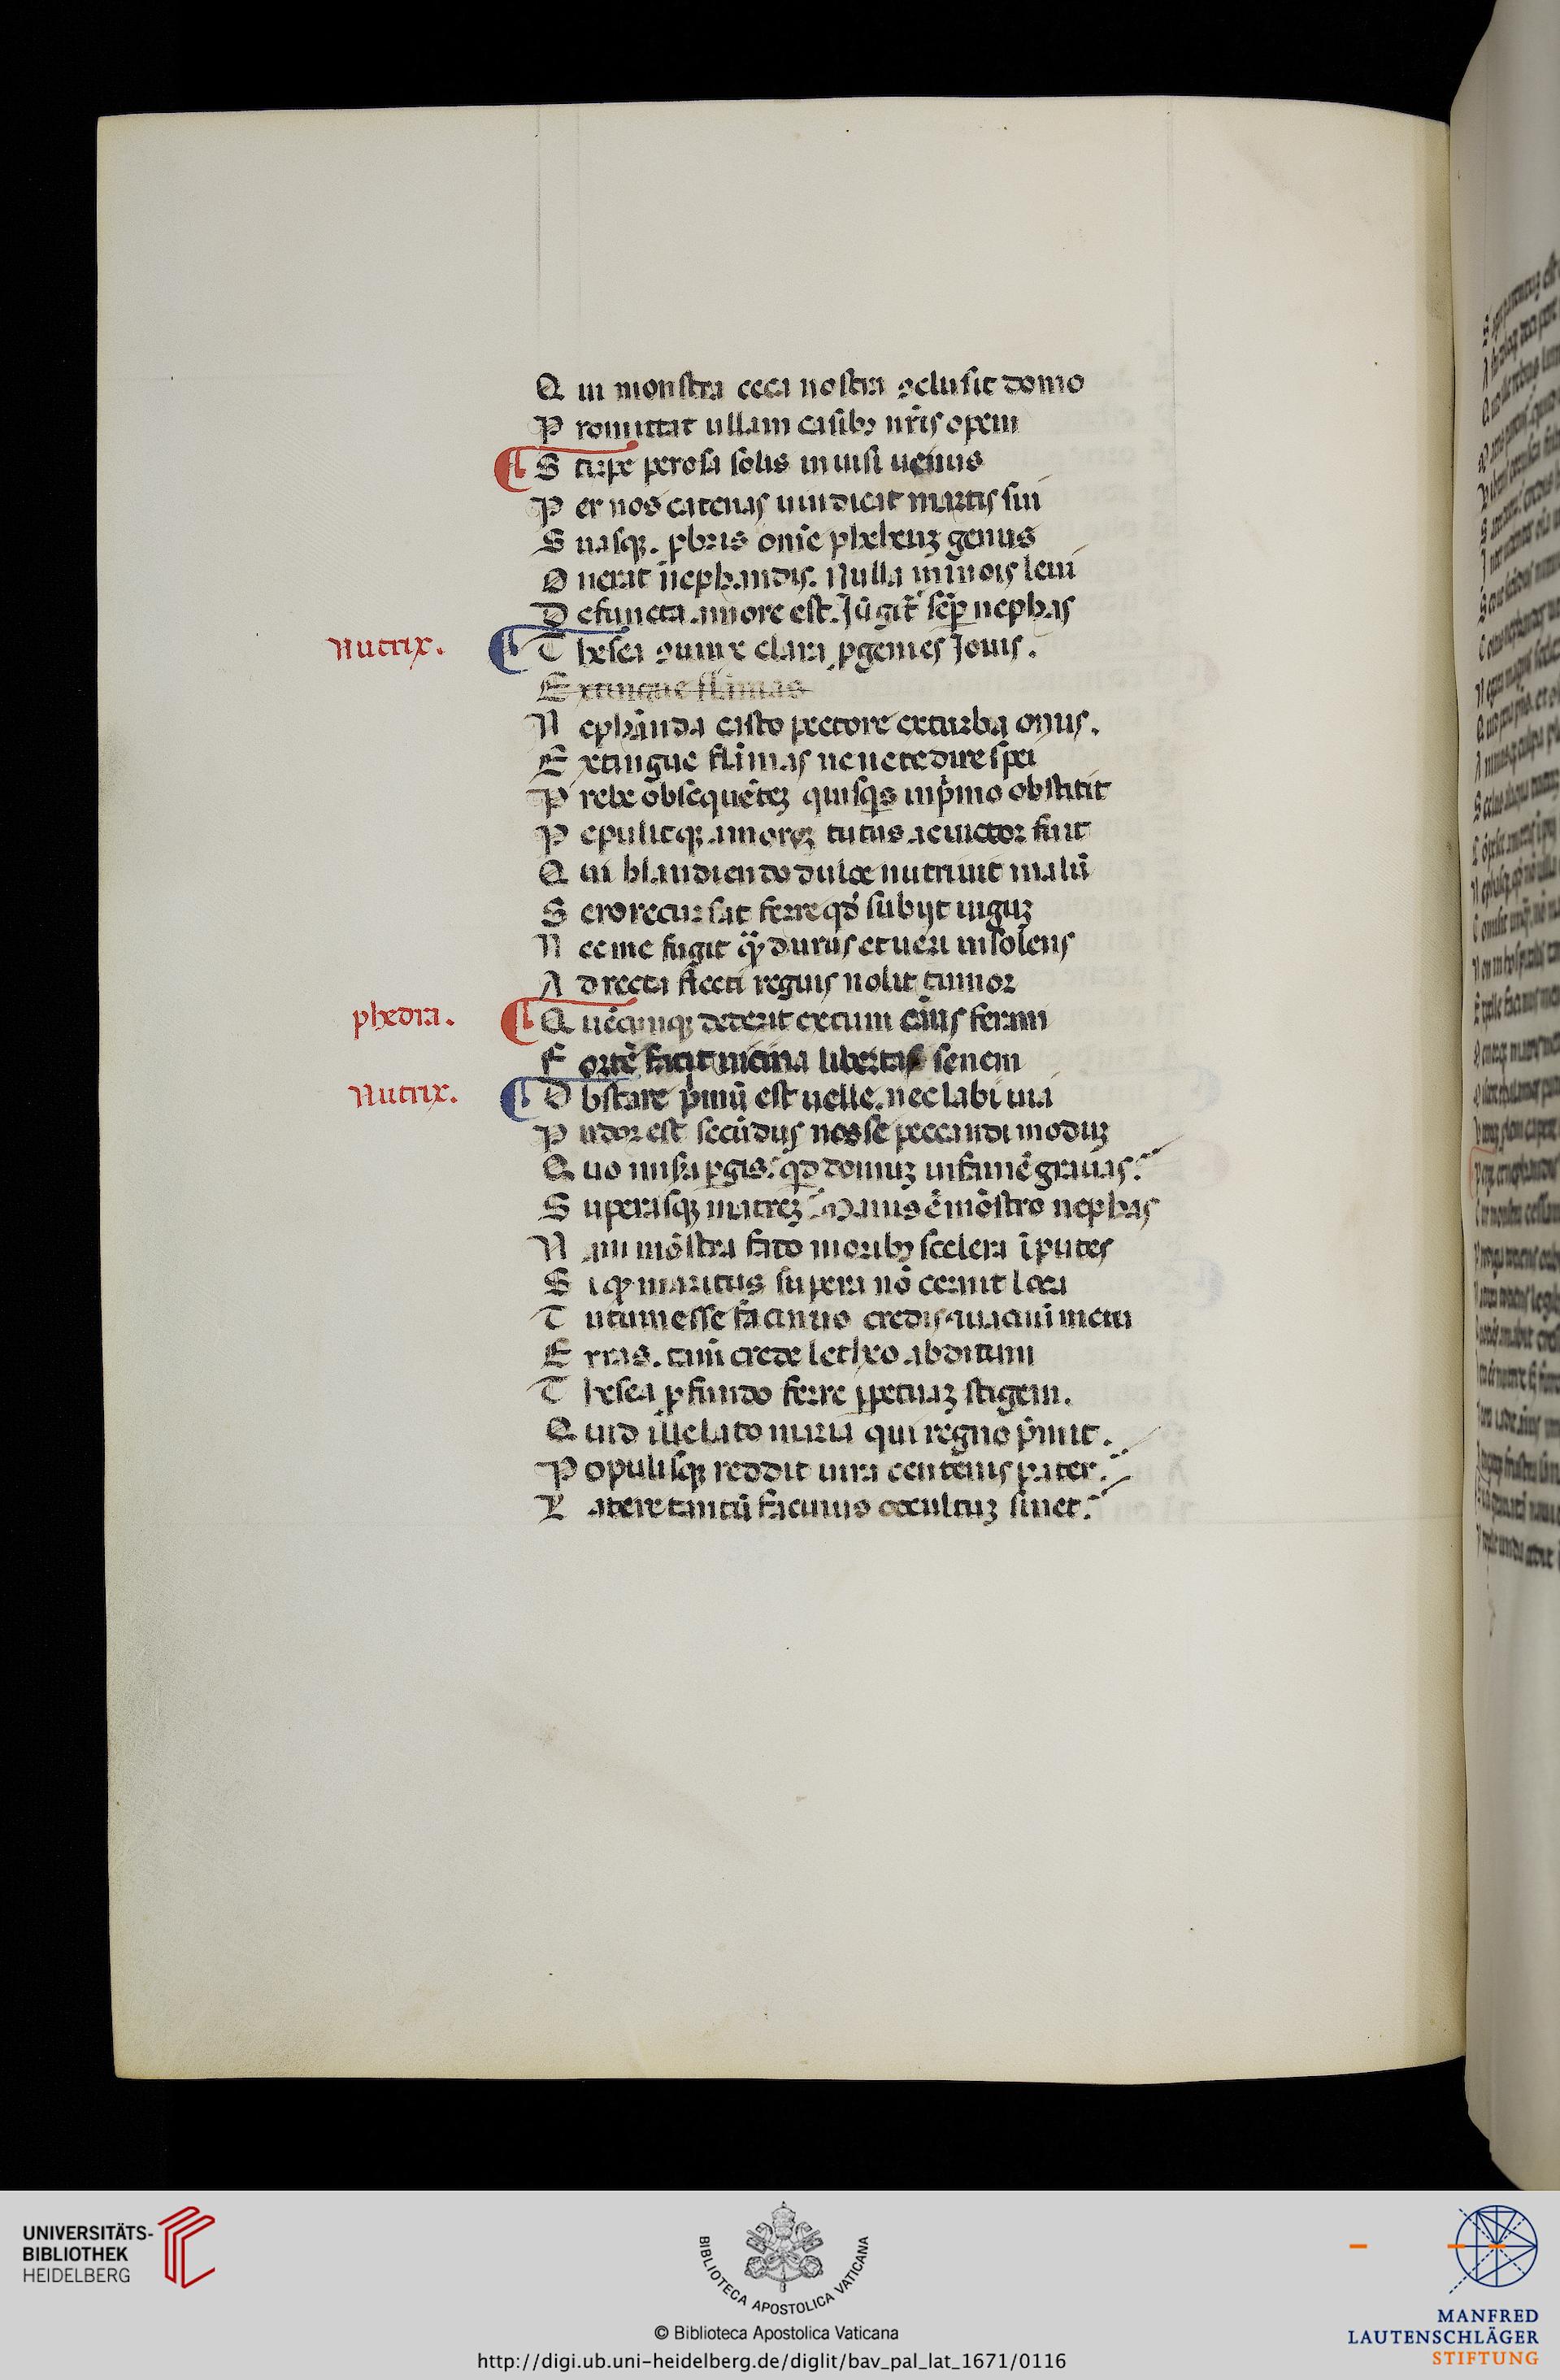 Q ui monstra ceca nostra ɔclusit domo
P romittat ullam casibꝫ nr̄is opem
S tirpe perosa solis inuisi uenus
P er nos catenas uindicat martis sui
S uasqꝫ. ꝓbris om̄e phebeuꝫ genus
O nerat nephandis. Nulla minois leui
D efuncta amore est. Iūgit᷑ sēp nephas
Nutrix.
T hesea ɔiunx clara ꝓgenies Iouis.
E xtingue flāmas
N ephānda casto pectore exturba ocius.
E xtingue flāmas neue te dire spei
P rebe obsequētēꝫ quisqꝫ in pͥmo obstitit
P epulitqꝫ amoreꝫ tutus ac uictor fuit
Q ui blandiendo dulce nutriuit malū
S ero recusat ferre qd̄ subijt iuguꝫ
N ec me fugit qꝫ durus et ueri insolens
A d recta flecti regius nolit tumor
phedra.
Q uēcunqꝫ dederit exitum casus feram
F ortē facit uicina libertas senem
Nutrix.
O bstare pͥmū est uelle. nec labi uia
P udor est secūdus nosse peccandi moduꝫ
Q uo misera ꝑgis. qd domuꝫ infamē grauas.
S uperasqꝫ matreꝫ. Maius ē mōstro nephas
N am mōstra fato moribꝫ scelera īputes
S i qꝫ maritus supera nō cernit loca
T utum esse facinus credis uacuū metu
E rras. teneri crede letheo abditum
T hesea ꝓfundo ferre ꝑpetuaꝫ stigem.
Q uid ille lato maria qui regno pͥmit.
P opulisqꝫ reddit iura centenis pater.
L atere tantū facinus occultuꝫ sinet.
UNIVERSITÄTS-
BIBLIOTHEK
HEIDELBERG
BIBLIOTECA APOSTOLICA VATICANA
© Biblioteca Apostolica Vaticana
http://digi.ub.uni-heidelberg.de/diglit/bav_pal_lat_1671/0116
MANFRED
LAUTENSCHLÄGER
STIFTUNG